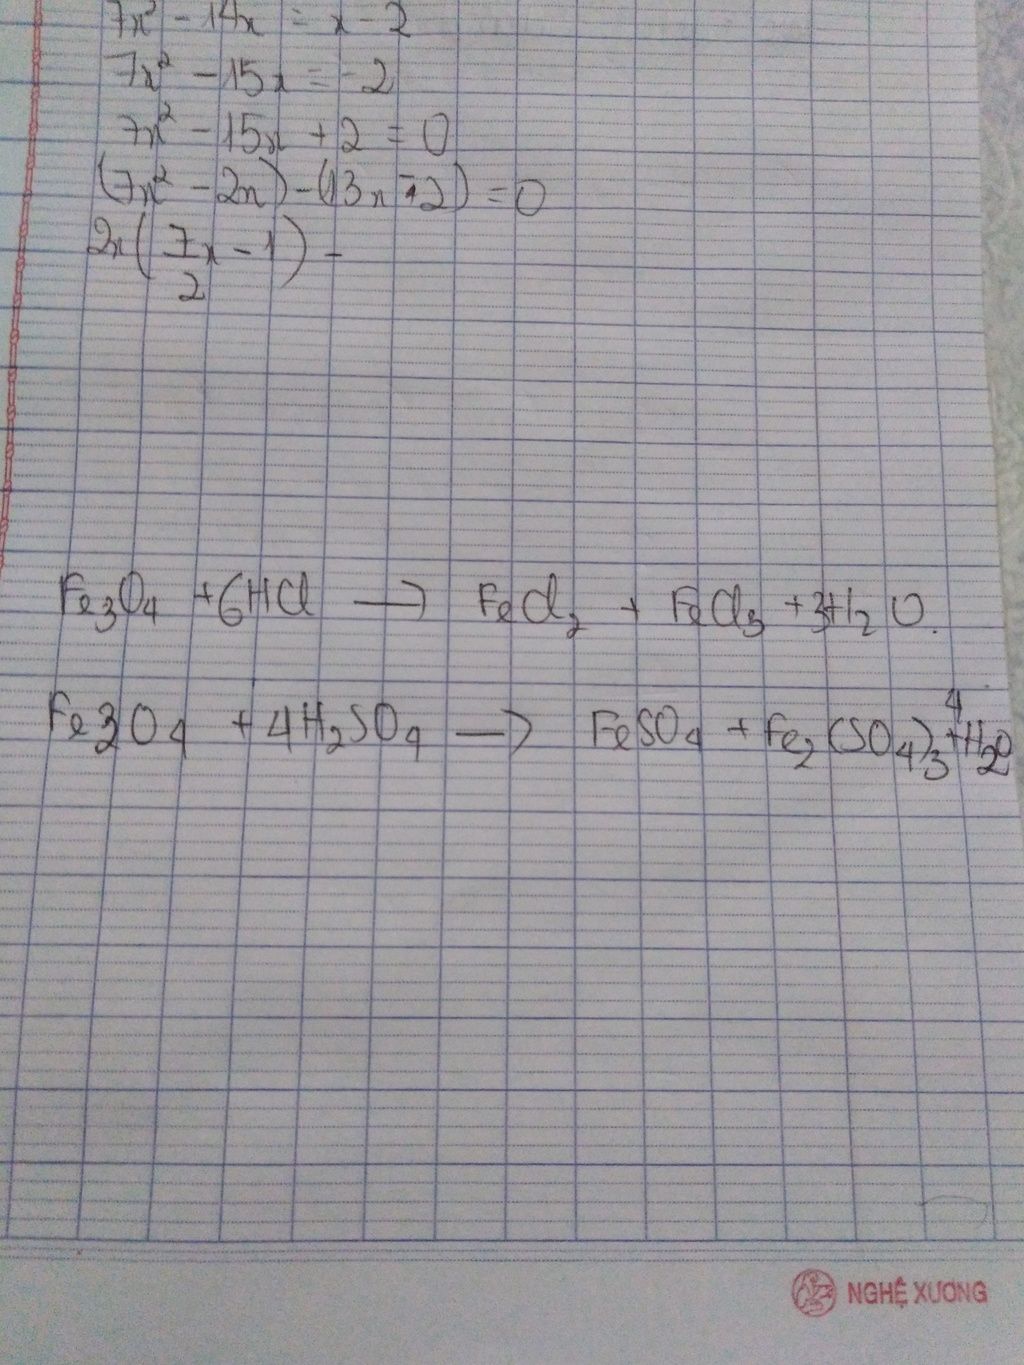 7x² - 14x = x - 2
7x² - 15x = -2
7x² - 15x + 2 = 0
(7x² - 2x) - (13x - 2) = 0
2x(7x/2 - 1) -
Fe₃O₄ + 6HCl → FeCl₂ + FeCl₃ + 3H₂O.
Fe3O₄ + 4H₂SO₄ → FeSO₄ + Fe₂(SO₄)₃ + 4H₂O
NGHỆ XUONG